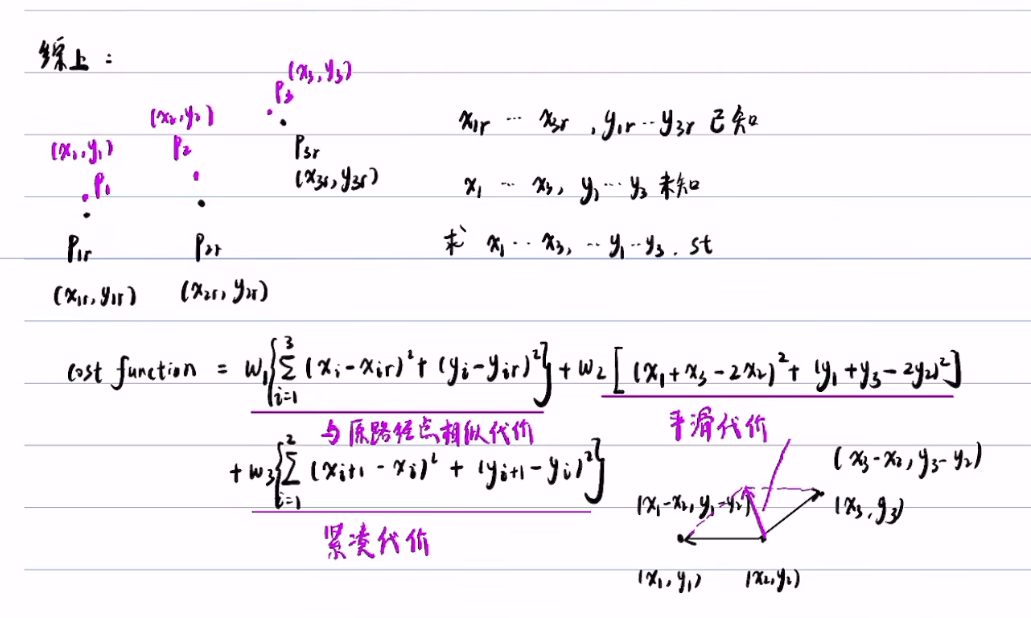 综上：
(x₃, y₃)
P₃
(x₂, y₂)
P₂
(x₁, y₁)
P₁
x₁ᵣ ··· x₃ᵣ , y₁ᵣ ·· y₃ᵣ 已知
P₃ᵣ
(x₃ᵣ, y₃ᵣ)
x₁ ··· x₃, y₁ ·· y₃ 未知
P₁ᵣ P₂ᵣ
求 x₁ ·· x₃, ·· y₁ ·· y₃ . st
(x₁ᵣ, y₁ᵣ) (x₂ᵣ, y₂ᵣ)
cost function = w₁{∑_{i=1}^{3} (xᵢ - xᵢᵣ)² + (yᵢ - yᵢᵣ)²} + w₂[(x₁ + x₃ - 2x₂)² + (y₁ + y₃ - 2y₂)²]
与原路径点相似代价 平滑代价
+ w₃{∑_{i=1}^{2} (xᵢ₊₁ - xᵢ)² + (yᵢ₊₁ - yᵢ)²}
紧凑代价
(x₃ - x₂, y₃ - y₂)
(x₁ - x₂, y₁ - y₂) (x₃, y₃)
(x₁, y₁) (x₂, y₂)